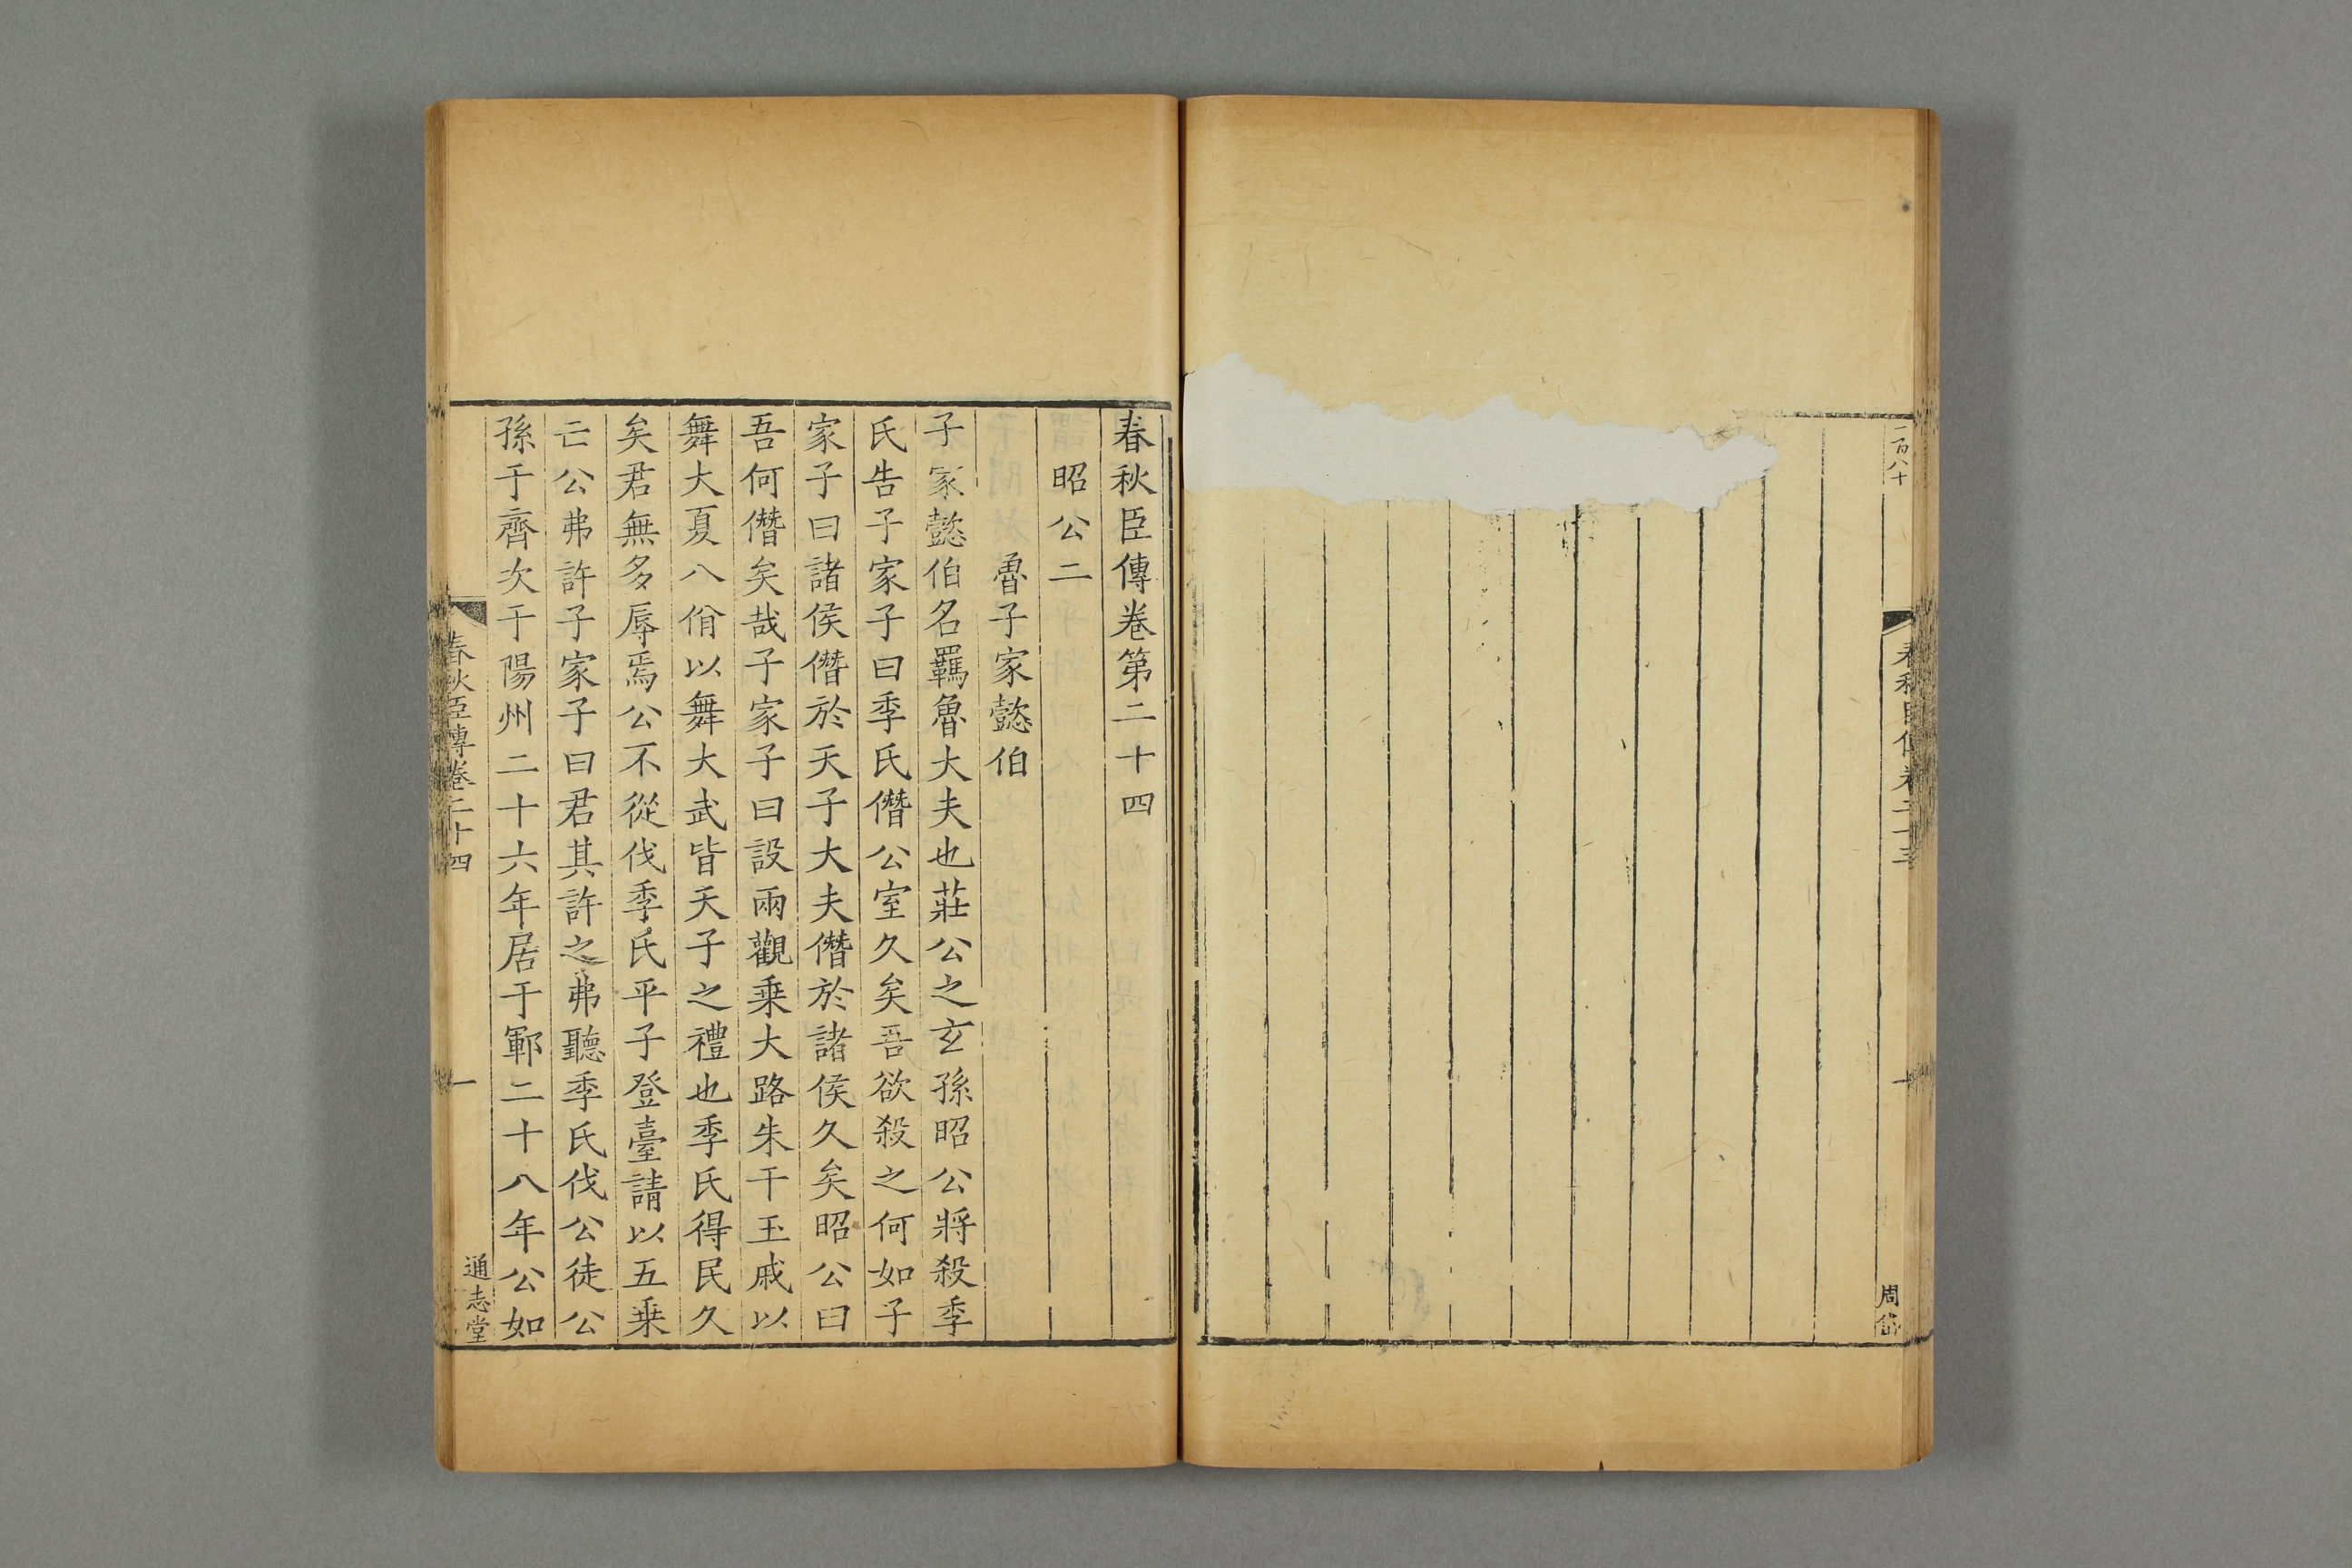 二百八十
春秋臣傳卷二十三
十
周
春秋臣傳卷第二十四
昭公二
魯子家懿伯
子家懿伯名羈魯大夫也莊公之玄孫昭公將殺季
氏告子家子曰季氏僭公室久矣吾欲殺之何如子
家子曰諸侯僭於天子大夫僭於諸侯久矣昭公曰
吾何僭矣哉子家子曰設兩觀乗大路朱干玉戚以
舞大夏八佾以舞大武皆天子之禮也季氏得民久
矣君無多辱焉公不從伐季氏平子登臺請以五乗
亡公弗許子家子曰君其許之弗聽季氏伐公徒公
孫于齊次于陽州二十六年居于鄆二十八年公如
春秋臣傳卷二十四
一
通志堂